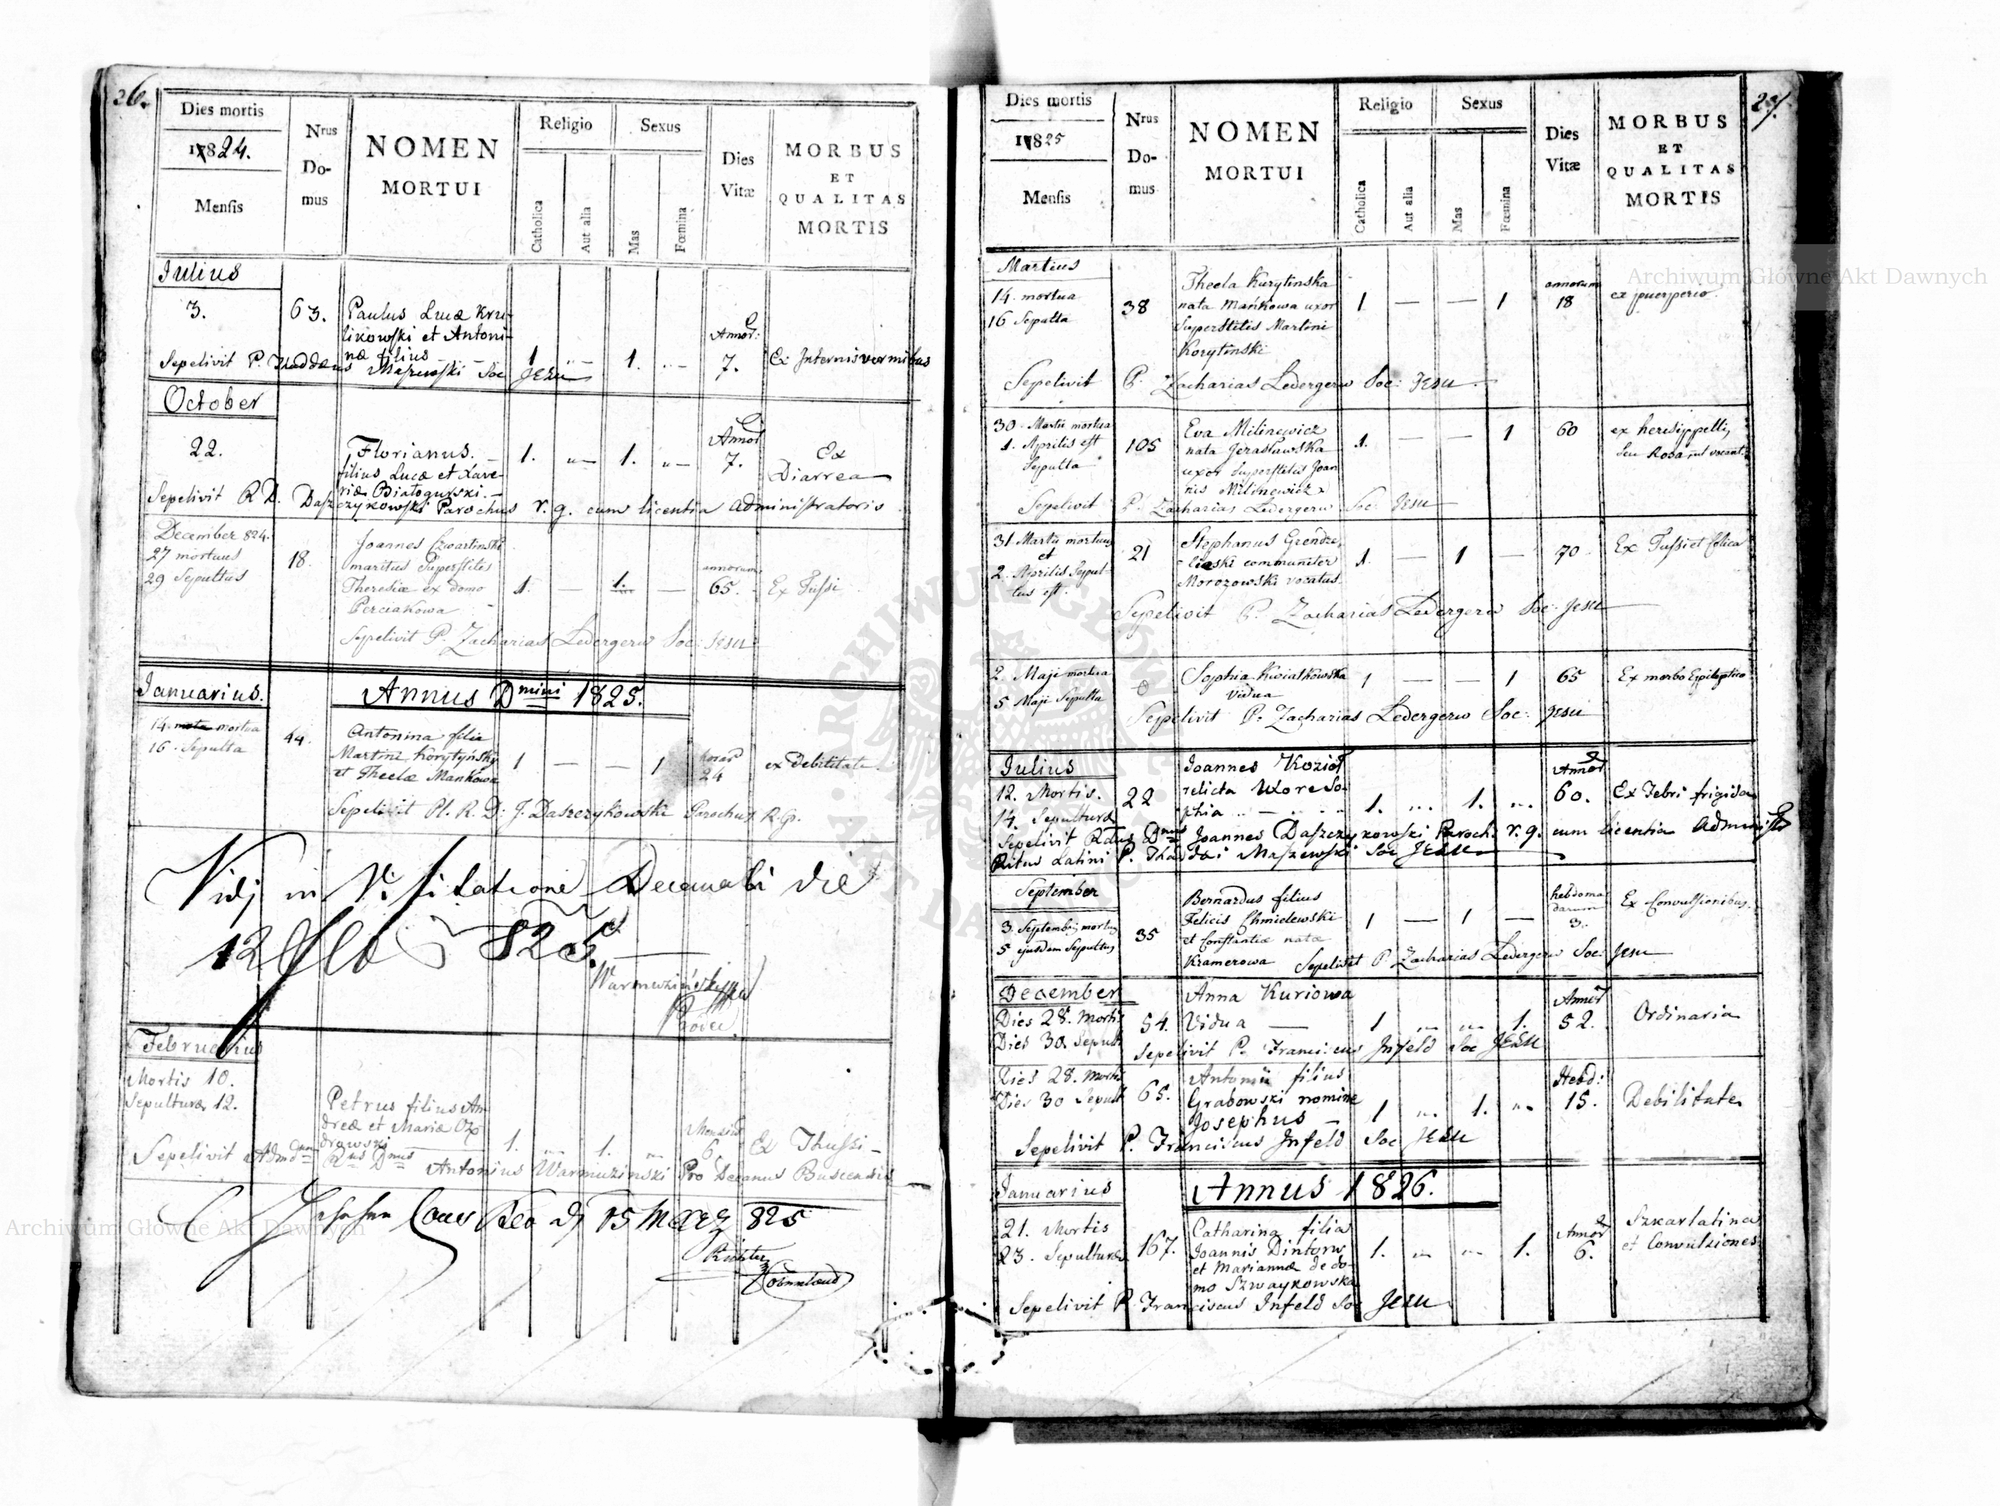 26.
Dies mortis
1824.
Mensis
Nrus Domus
NOMEN
MORTUI
Religio
Catholica
Aut alia
Sexus
Mas
Fœmina
Dies Vitæ
MORBUS
ET
QUALITAS
MORTIS
Iulius
3.
63.
Paulus Lucæ Kru-
likowski et Antoni-
næ filius
1
1.
Annor:
7.
Ex Internis vermibus
Sepelivit P. Thaddæus Maszewski Soc JESU
October
22.
Florianus.
filius Lucæ et Xave-
riæ Białogurski.
1.
1.
Annor
7.
Ex
Diarrea
Sepelivit R D. Daszczykowski Parochus r. g. cum licentia Administratoris
December 824.
27 mortuus
29 Sepultus
18.
Joannes Czwartinski
maritus Superstitis
Theresiæ ex domo
Perciakowa
1.
1.
annorum
65.
Ex Tussi
Sepelivit P. Zacharias Ledergerw Soc: Jesu
Januarius.
Annus Dmini 1825.
14. mortua
16. Sepulta
44.
Antonina filia
Martini Korytyński
et Theclæ Mankowa
1
1
horar
24
ex debilitate
Sepelivit Pl. R. D: J. Daszczykowski Parochus R. G.
Vidi in Visitatione Decanali die
12 825.
Februarius
Mortis 10.
Sepulturæ 12.
Petrus filius An-
dreæ et Mariæ Ożo-
drowski
1.
1.
6.
Ex Thussi
Sepelivit Admdum Rdus Dnus Antonius Warmuzinski Pro Decanus Buscensis
15 März 825
27.
Dies mortis
1825
Mensis
Nrus Domus
NOMEN
MORTUI
Religio
Catholica
Aut alia
Sexus
Mas
Fœmina
Dies Vitæ
MORBUS
ET
QUALITAS
MORTIS
Martius
14. mortua
16 Sepulta
38
Thecla Kurytinska
nata Mańkowa uxor
Superstitis Martini
Korytinski
1
1
annorum
18
ex puerperio.
Sepelivit P. Zacharias Ledergerw Soc: Jesu
30. Martii mortua
1. Aprilis est
Sepulta
105
Eva Milinewicz
nata Jerasławska
uxor Superstitis Joan
nis Milinewicz
1.
1
60
ex heresippelli,
seu Rosa, ut vocant.
Sepelivit P. Zacharias Ledergerw Soc: Jesu
31. Martii mortuus
et
2. Aprilis Sepul-
tus est.
21
Stephanus
communiter
Morozowski vocatus.
1.
1
70
Ex Tussi et Colica
Sepelivit P. Zacharias Ledergerw Soc: Jesu
2. Maji mortua
5 Maji Sepulta
0
Sophia Kwiatkowska
Vidua
1
1
65
Ex morbo Epileptico
Sepelivit P. Zacharias Ledergerw Soc: Jesu
Iulius
12. Mortis.
14. Sepulturæ
22
Joannes Kozioł
relicta Uxore So-
phia
1.
1.
Annor
60.
Ex Febri frigida
Sepelivit Rdus Dnus Joannes Daszczykowski Paroch. r. g. cum licentia Administr
Ritus Latini P. Thaddæi Maszewski Soc JESU
September
3. Septembris mortuus
5 ejusdem Sepultus
35
Bernardus filius
Felicis Chmielewski
et Constantiæ natæ
Kramerowa
1
1
hebdoma-
darum
3.
Ex Convulsionibus.
Sepelivit P. Zacharias Ledergerw Soc: Jesu
December
Dies 28. Mortis
Dies 30. Sepult
54.
Anna Kuriowa
Vidua
1
1.
Annor
52.
Ordinaria
Sepelivit P. Franciscus Infeld Soc JESU
Dies 28. Mortis
Dies 30 Sepult
65.
Antonii filius
Grabowski nomine
Josephus
1
1.
Hebd:
15.
Debilitate
Sepelivit P. Franciscus Infeld Soc JESU
Januarius
Annus 1826.
21. Mortis
23. Sepulturæ
167.
Catharina filia
Joannis Dintorw
et Mariannæ de do-
mo Szwaykowska
1.
1.
Annor
6.
Szkarlatina
et Convulziones
Sepelivit P. Franciscus Infeld Soc Jesu
Archiwum Główne Akt Dawnych
Archiwum Główne Akt Dawnych
ARCHIWUM GŁÓWNE AKT DAWNYCH